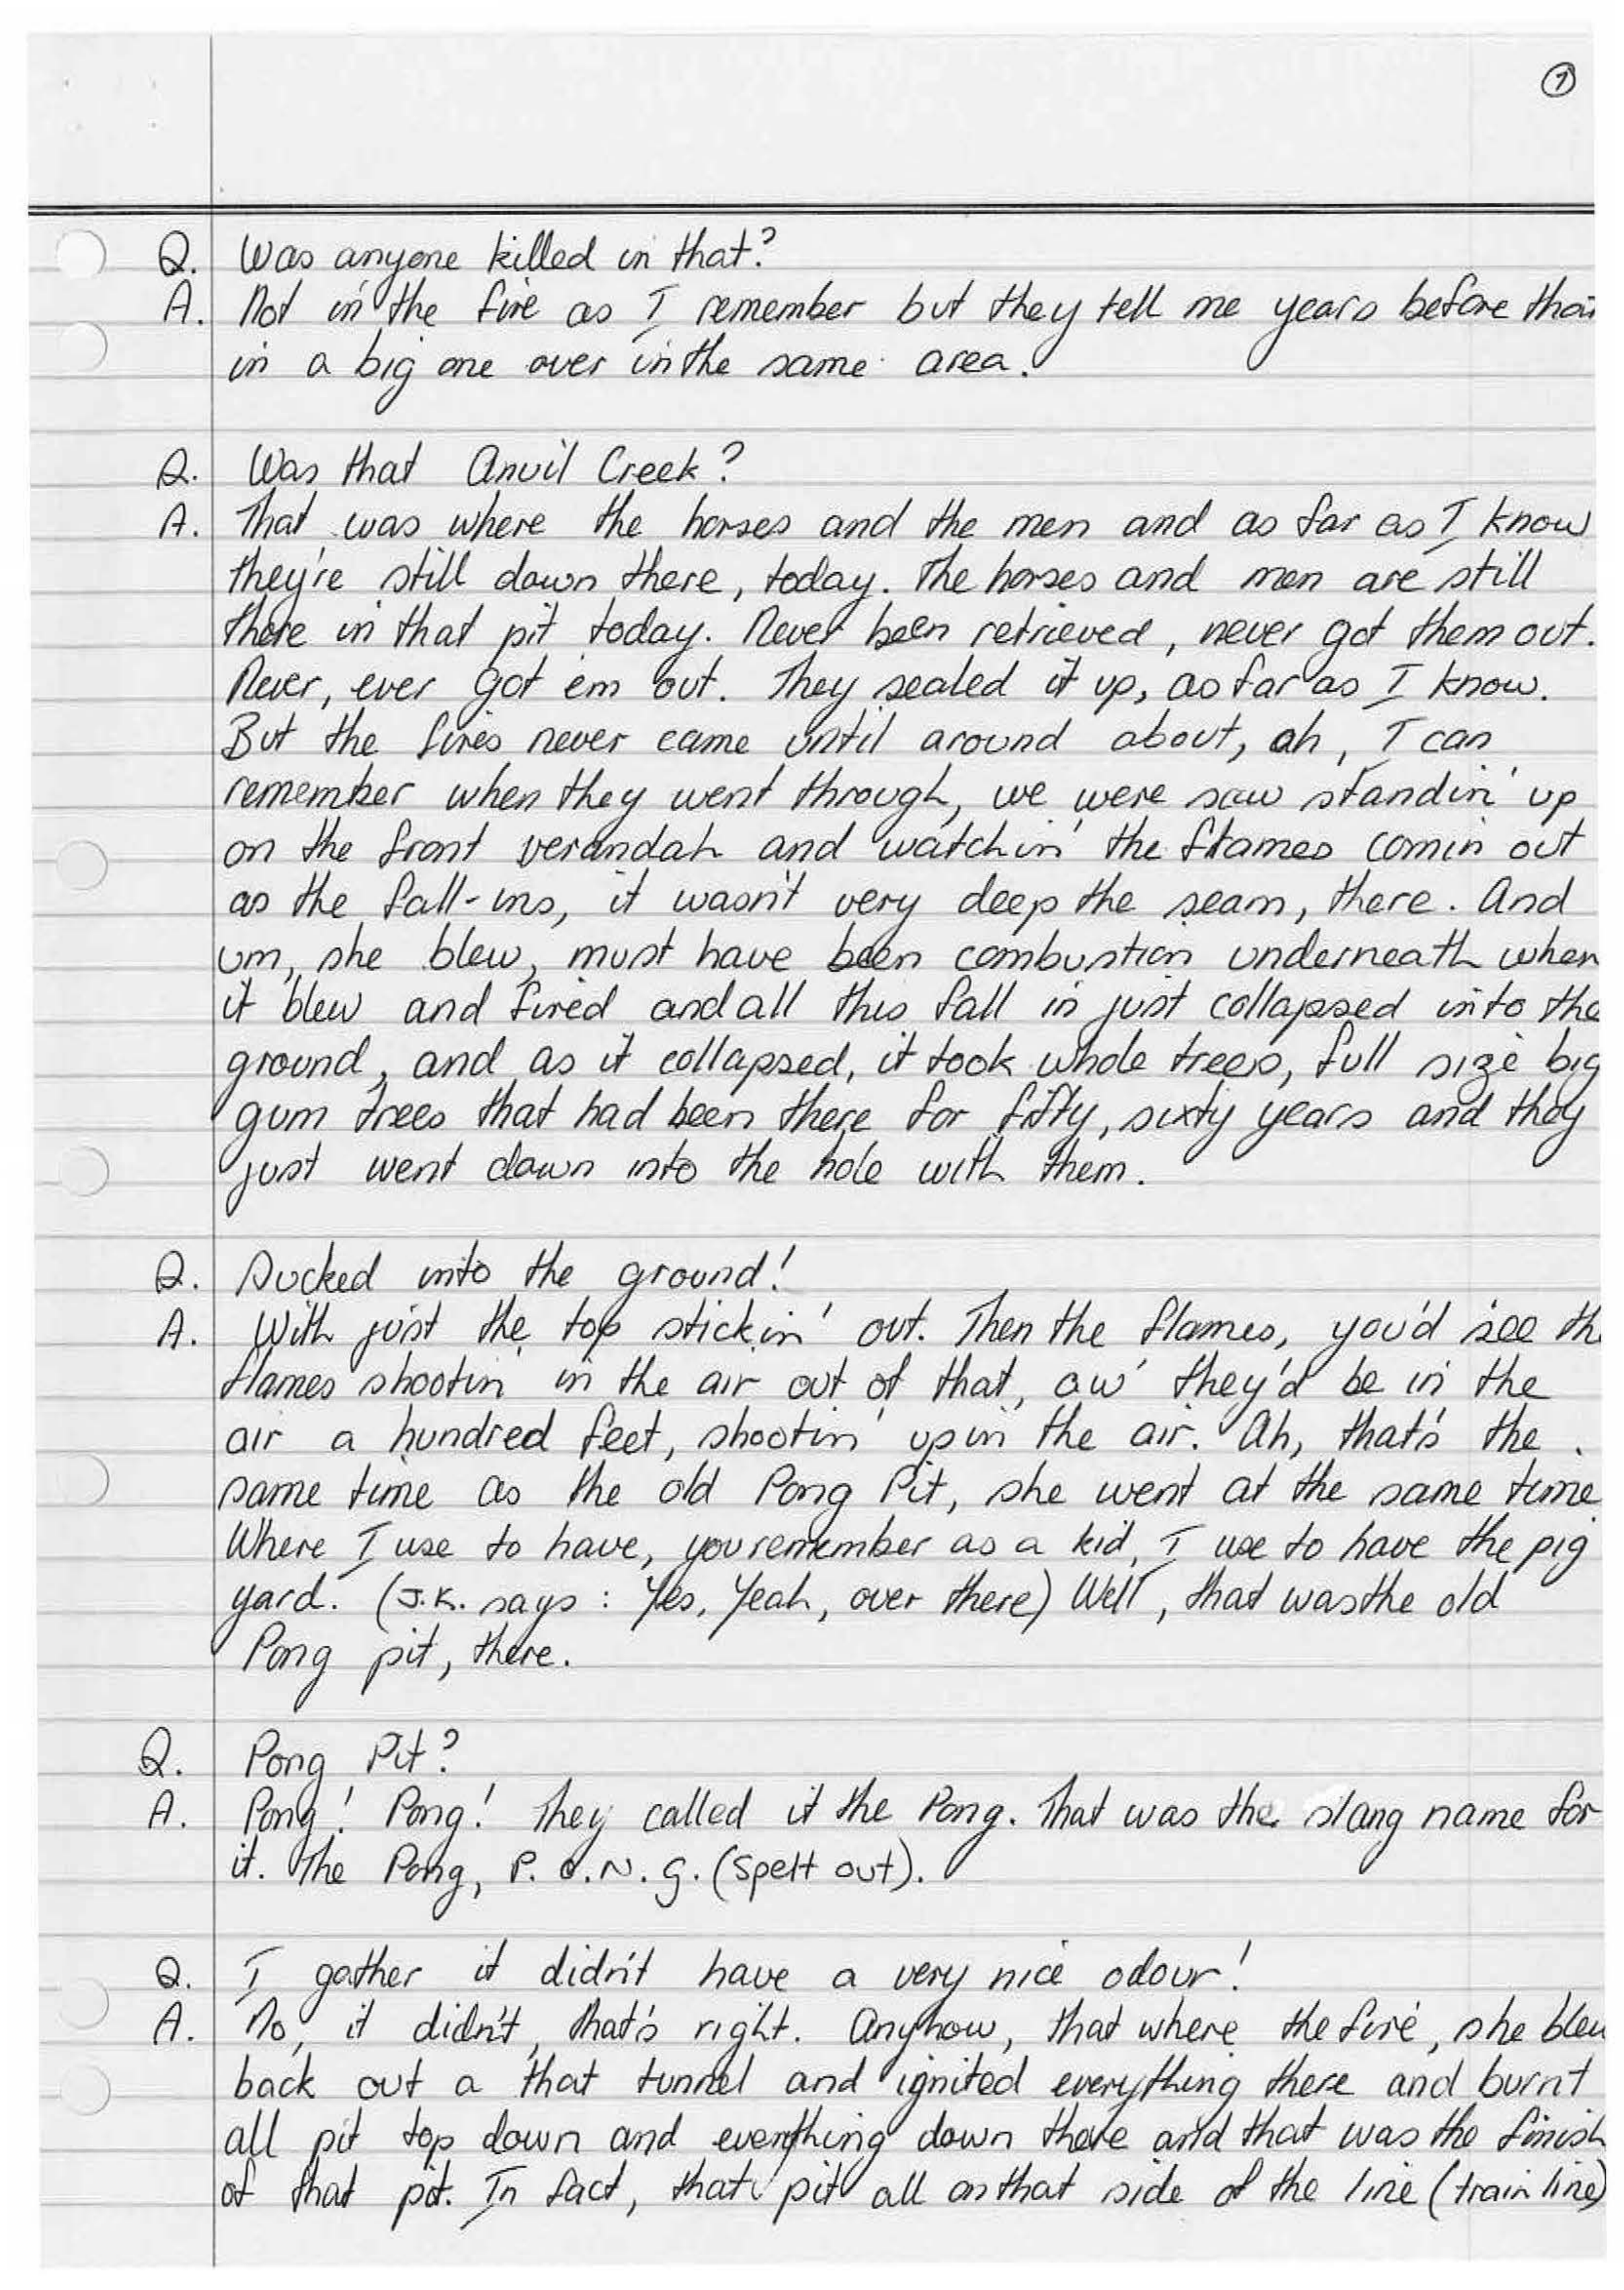 7
Q. Was anyone killed in that?
A. Not in the fire as I remember but they tell me years before that
in a big one over in the same area.
Q. Was that Anvil Creek?
A. That was where the horses and the men and as far as I know
they're still down there, today. The horses and men are still
there in that pit today. Never been retrieved, never got them out.
Never, ever got em out. They sealed it up, as far as I know.
But the fires never came until around about, ah, I can
remember when they went through, we were saw standin' up
on the front verandah and watchin' the flames comin out
as the fall-ins, it wasn't very deep the seam, there. And
um, she blew, must have been combustion underneath when
it blew and fired and all this fall in just collapsed into the
ground, and as it collapsed, it took whole trees, full size big
gum trees that had been there for fifty, sixty years and they
just went down into the hole with them.
Q. Sucked into the ground!
A. With just the top stickin' out. Then the flames, you'd see the
flames shootin' in the air out of that, aw' they'd be in the
air a hundred feet, shootin' up in the air. Ah, that's the
same time as the old Pong Pit, she went at the same time
Where I use to have, you remember as a kid, I use to have the pig
yard. (J.K. says : Yes, Yeah, over there) Well, that was the old
Pong pit, there.
Q. Pong Pit?
A. Pong! Pong! They called it the Pong. That was the slang name for
it. The Pong, P. O. N. G. (spelt out).
Q. I gather it didn't have a very nice odour!
A. No, it didn't, that's right. Anyhow, that where the fire, she blew
back out a that tunnel and ignited everything there and burnt
all pit top down and everything down there and that was the finish
of that pit. In fact, that pit all on that side of the line (train line)